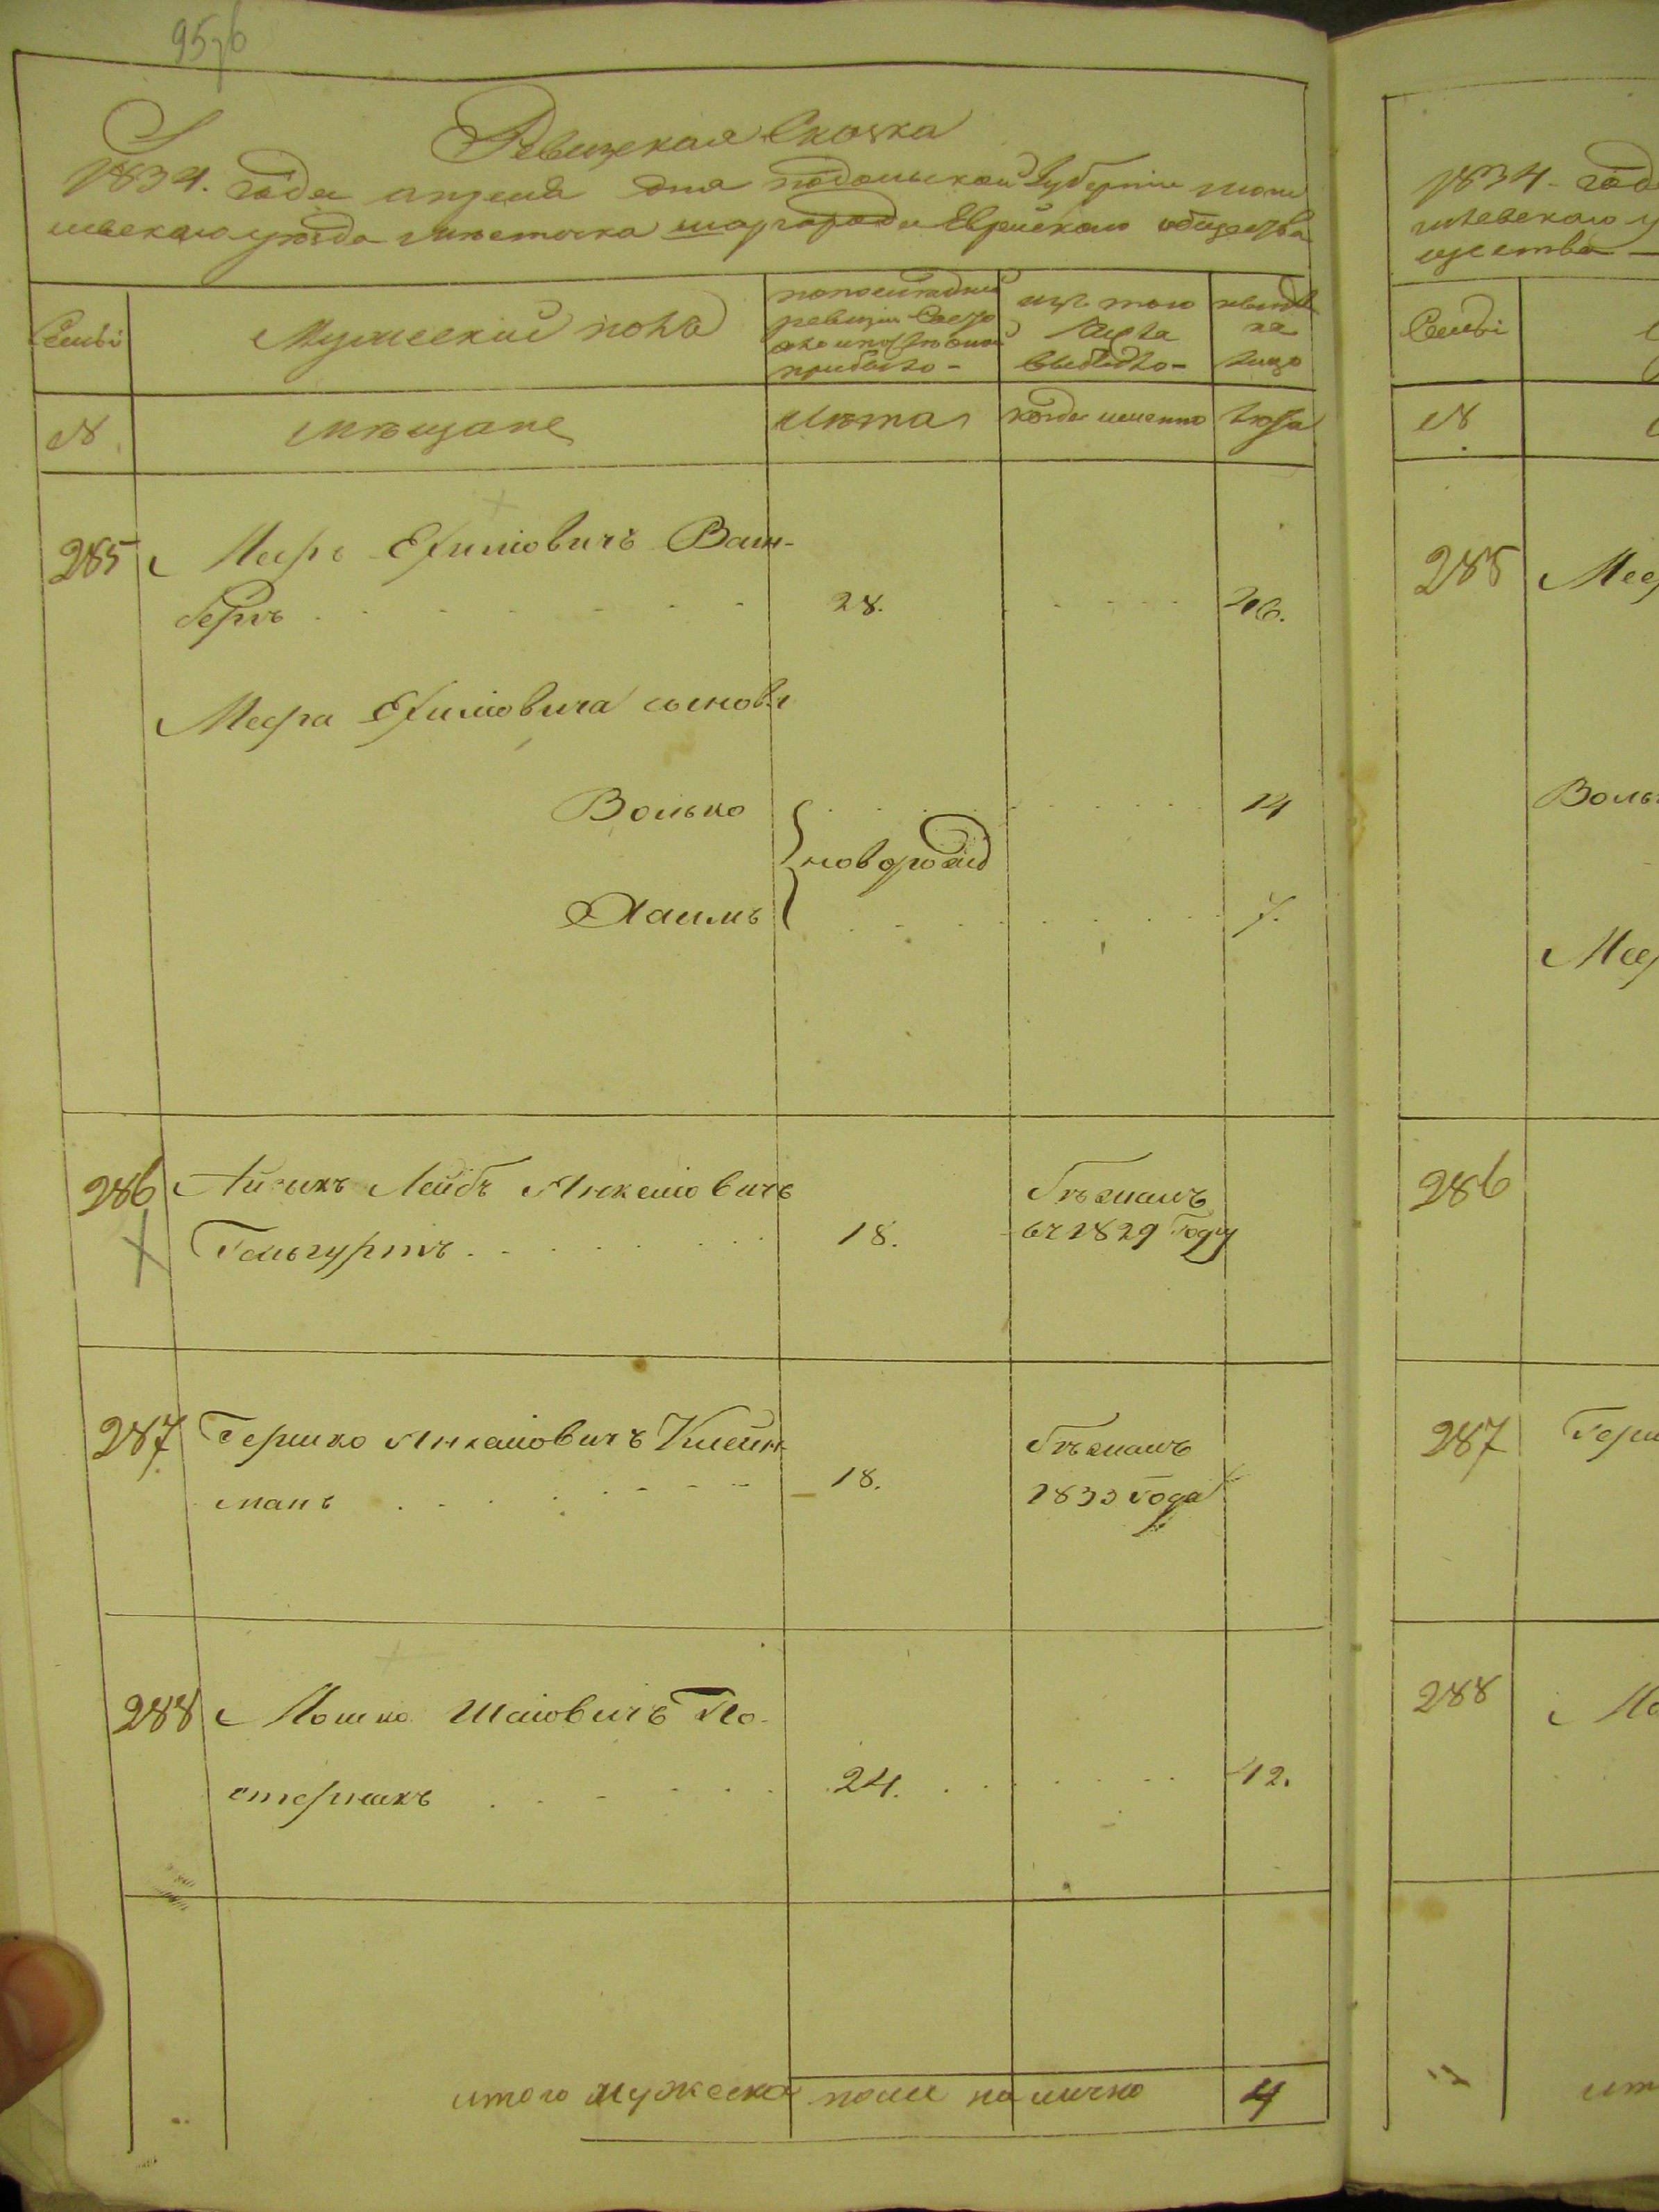 957 б
Ревизская Сказка
1834. года апреля дня подольской Губернии моги
левскаго уезда местечка шаргорода Еврейскаго общества
Семьи
Мужеский полъ
по последней
ревизии Состо
яло и после оной
прибыло -
изъ того
Числа
выбыло -
ныне
на
лицо
№
мещане
Лета
когда именно
лета
285 Меер Ехилiовичъ Ваин-
бергъ 28. 46.
Меера Ехилiовича сыновя
Волько 14
новорожд
Хаимъ 7.
286 Айзикъ Лейбъ Янкелiовичъ
Гельгуртъ 18.
Бежалъ
въ 1829 году
287 Гершко Янкелiовичъ Клейн-
манъ 18.
Бежалъ
1833 года
288 Мошко Шаiовичъ По-
стернакъ 24. 42.
итого мужеска пола на лично 4
1834 - год
щества
Семьи
№
285 Мее
Воль
Мее
286
287 Герш
288 Мо
ит